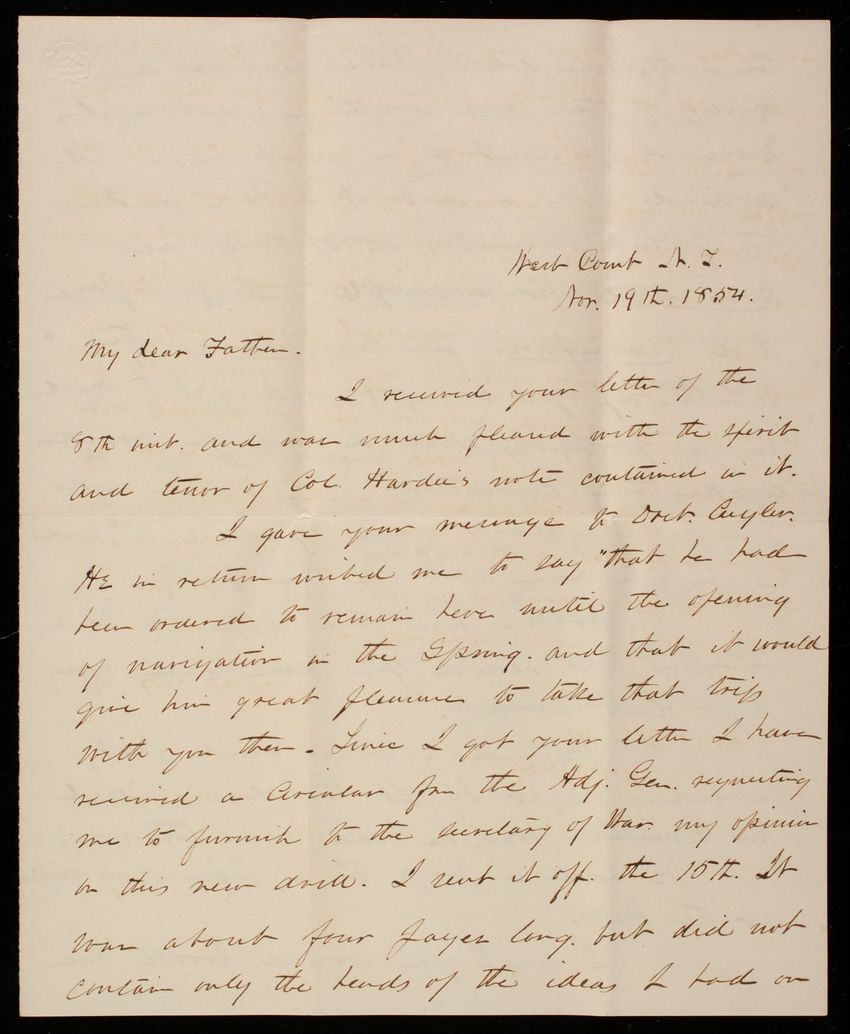 West Point N. Y.
Nov. 19th. 1854.
My dear Father.
I received your letter of the
8th inst. and was much pleased with the spirit
and tenor of Col. Hardee's note contained in it.
I gave your message to Doct. Cuyler.
He in return wished me to say "that he had
been ordered to remain here until the opening
of navigation in the Spring. and that it would
give him great pleasure to take that trip
with you then. Since I got your letter I have
received a Circular from the Adj. Gen. requesting
me to furnish to the Secretary of War. my opinion
on this new drill. I sent it off. the 15th. It
was about four pages long. but did not
contain only the heads of the ideas I had on